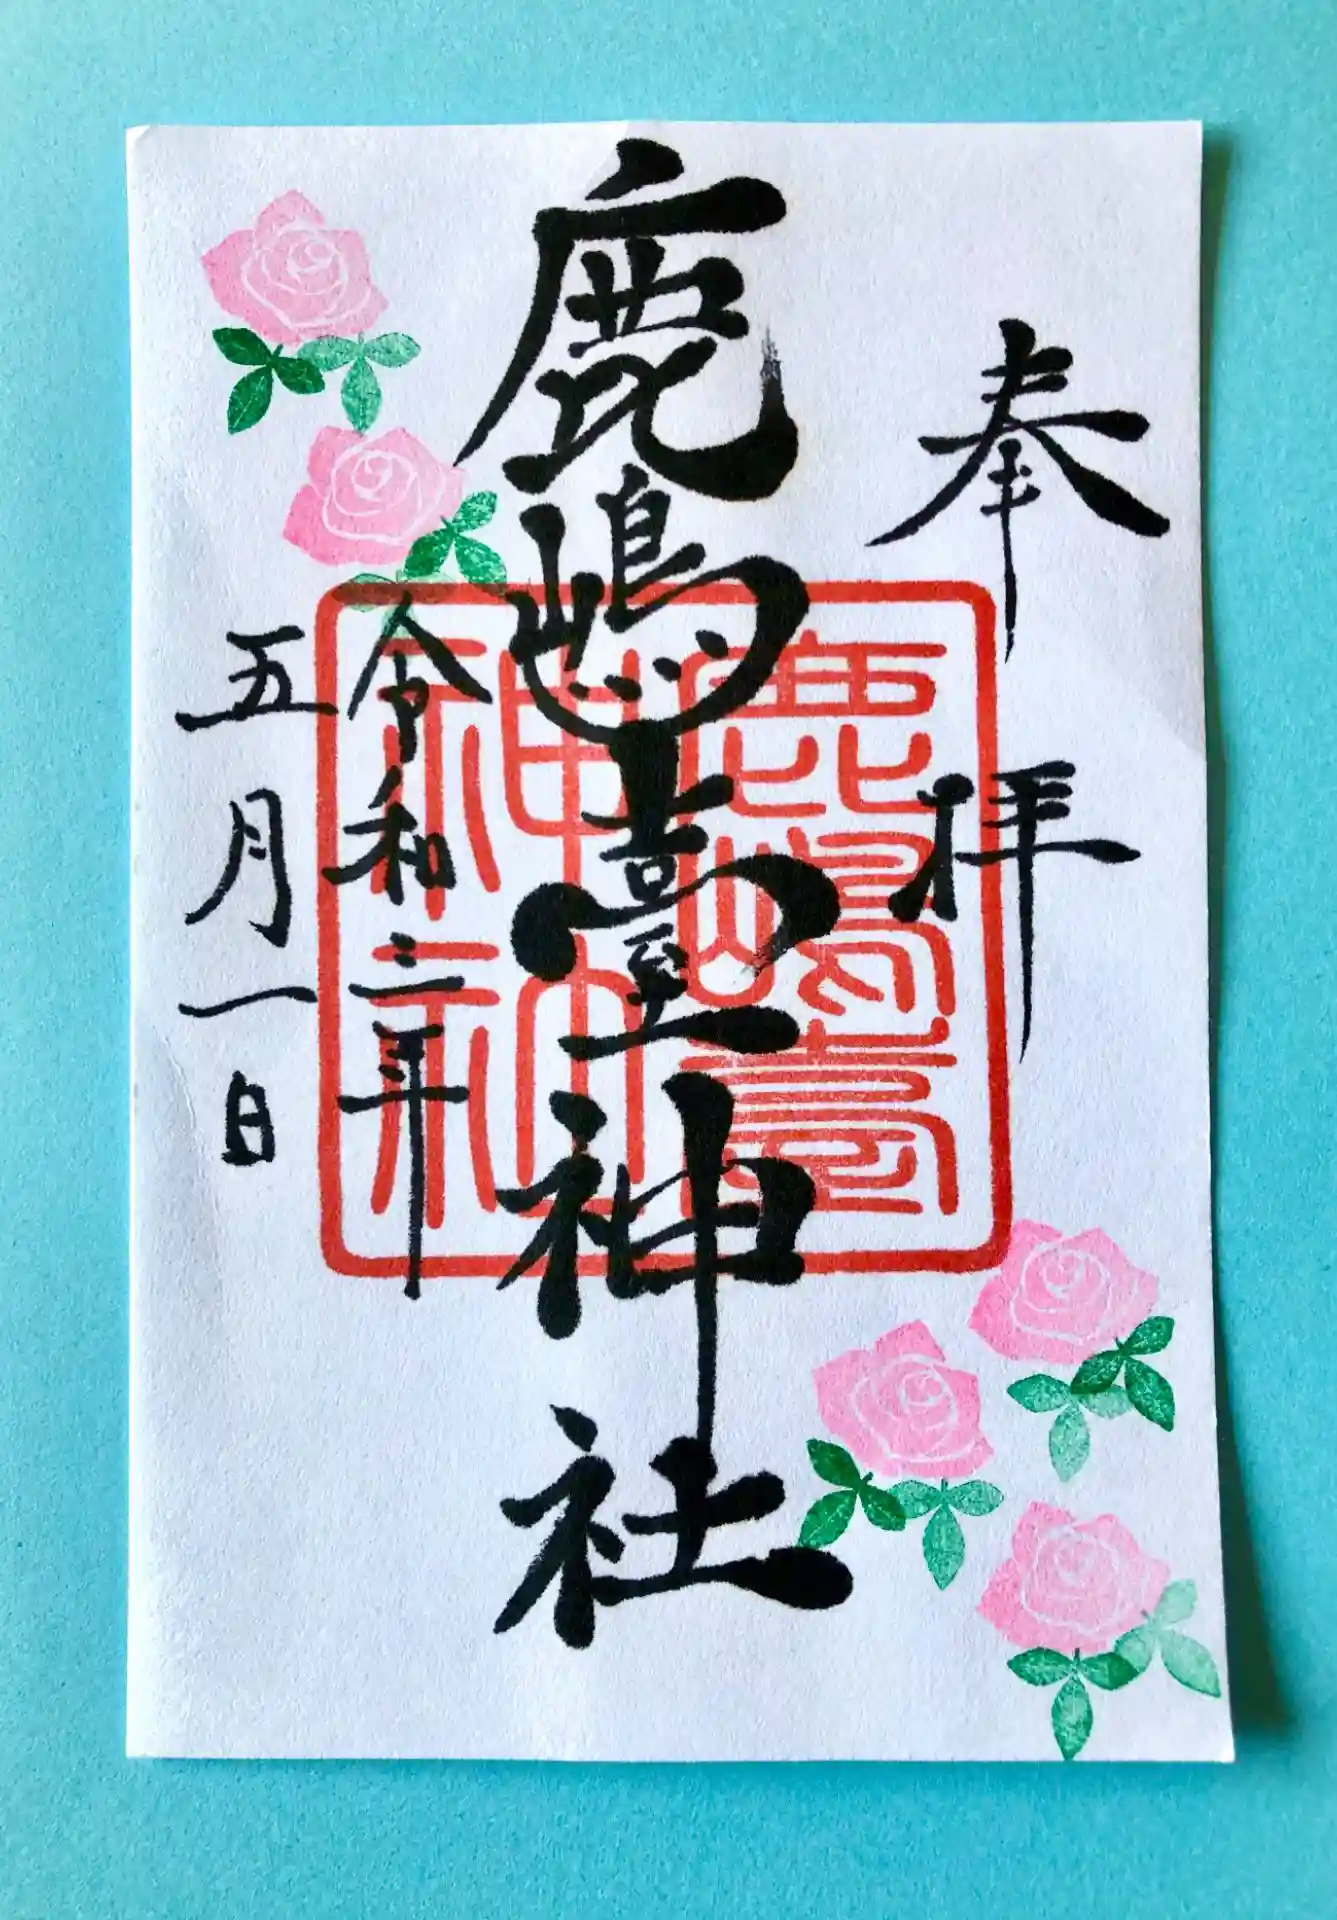 奉拝
鹿嶋臺神社
令和二年
五月一日
鹿嶋臺
神社